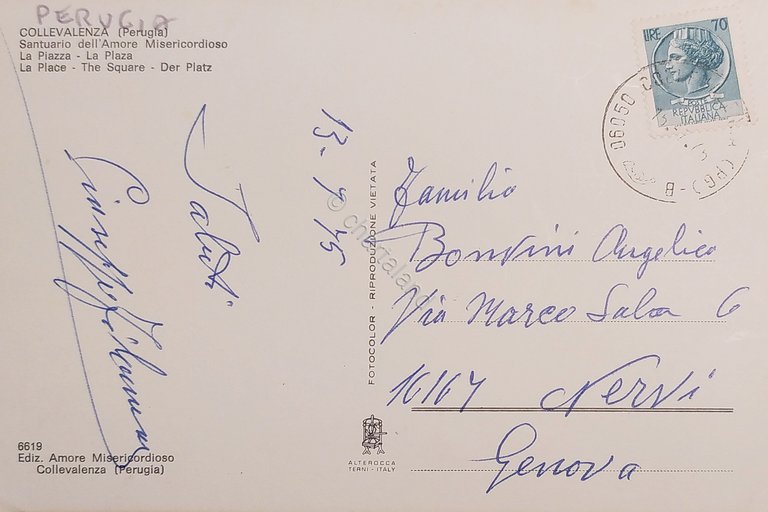 PERUGIA
COLLEVALENZA (Perugia)
Santuario dell'Amore Misericordioso
La Piazza - La Plaza
La Place - The Square - Der Platz
LIRE 70
POSTE
REPVBBLICA
ITALIANA
06050 (PG) - B
Saluti
Giuseppe
Familia
Bonvini Angelico
Via Marco Sala 6
16167 Nervi
Genova
FOTOCOLOR - RIPRODUZIONE VIETATA
© chartaland
6619
Ediz. Amore Misericordioso
Collevalenza (Perugia)
ALTEROCCA
TERNI - ITALY